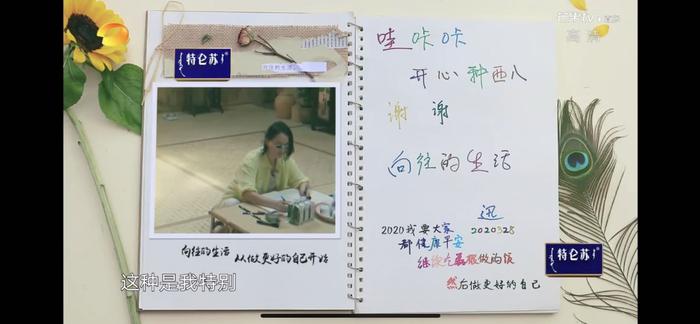 芒果tv
高清
特仑苏
向往的生活
从做更好的自己开始
哇咔咔
开心种西八
谢谢
向往的生活
迅
2020328
2020我要大家
都健康平安
继续吃磊报做的饭
然后做更好的自己
特仑苏
这种是我特别